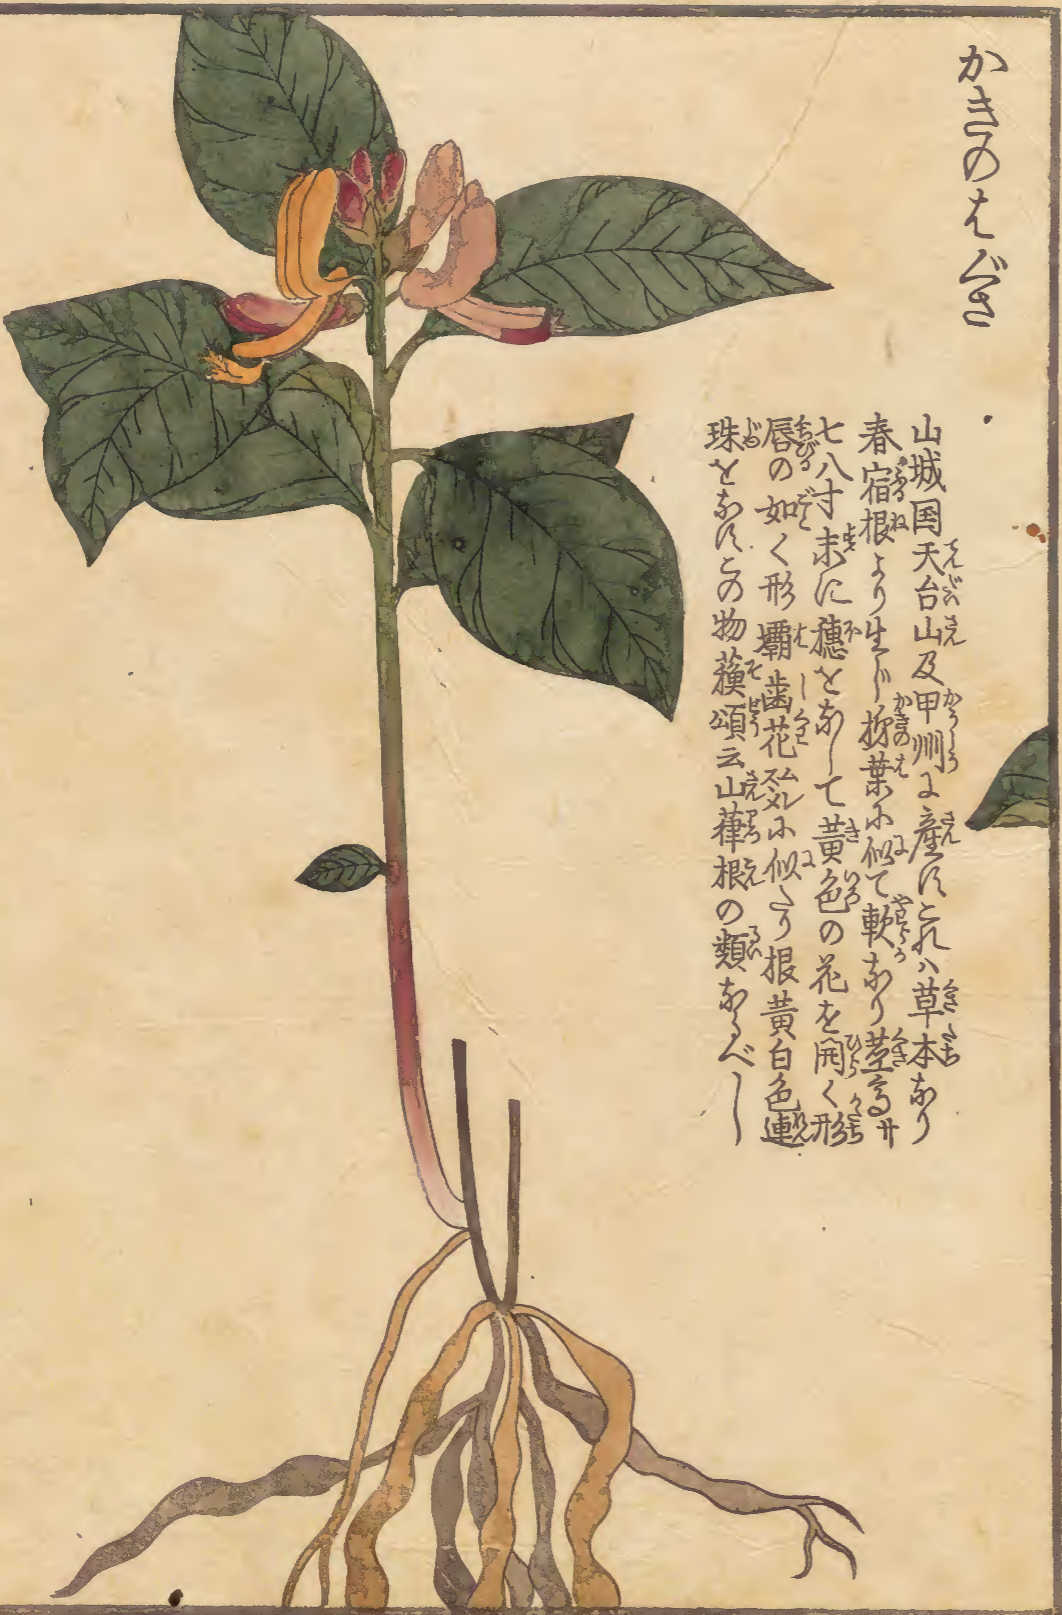 かきのはぐさ
山城国天台山及甲州に産すこれハ草本なり
春宿根より生じ柿葉に似て軟なり茎高サ
七八寸末に穂をなして黄色の花を開く形
唇の如く形覇歯花に似たり根黄白色連
珠をなすこの物蘓頌云山葎根の類なるべし